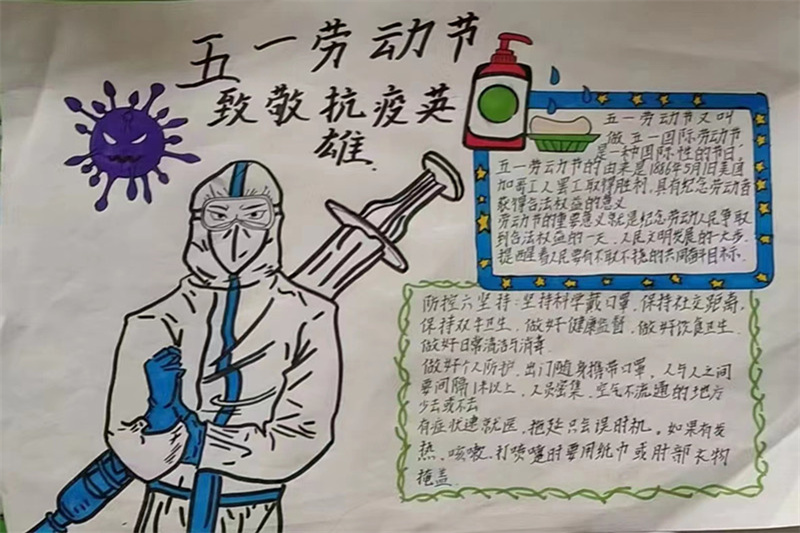 五一劳动节
致敬抗疫英
雄
五一劳动节又叫
做五一国际劳动节
是一种国际性的节日。
五一劳动节的由来是1886年5月1日美国
加哥工人罢工取得胜利,具有纪念劳动者
获得合法权益的意义
劳动节的重要意义就是纪念劳动人民争取
到合法权益的一天,人民文明发展的一大步
提醒着人民要有不耻不挠的共同奋斗目标.
防控六坚持:坚持科学戴口罩,保持社交距离,
保持双手卫生,做好健康监督,做好饮食卫生.
做好日常清洁与消毒.
做好个人防护,出门随身携带口罩,人与人之间
要间隔1米以上,人员密集,空气不流通的地方
少去或不去
有症状速就医,拖延只会误时机。如果有发
热、咳嗽、打喷嚏时要用纸巾或肘部衣物
掩盖.